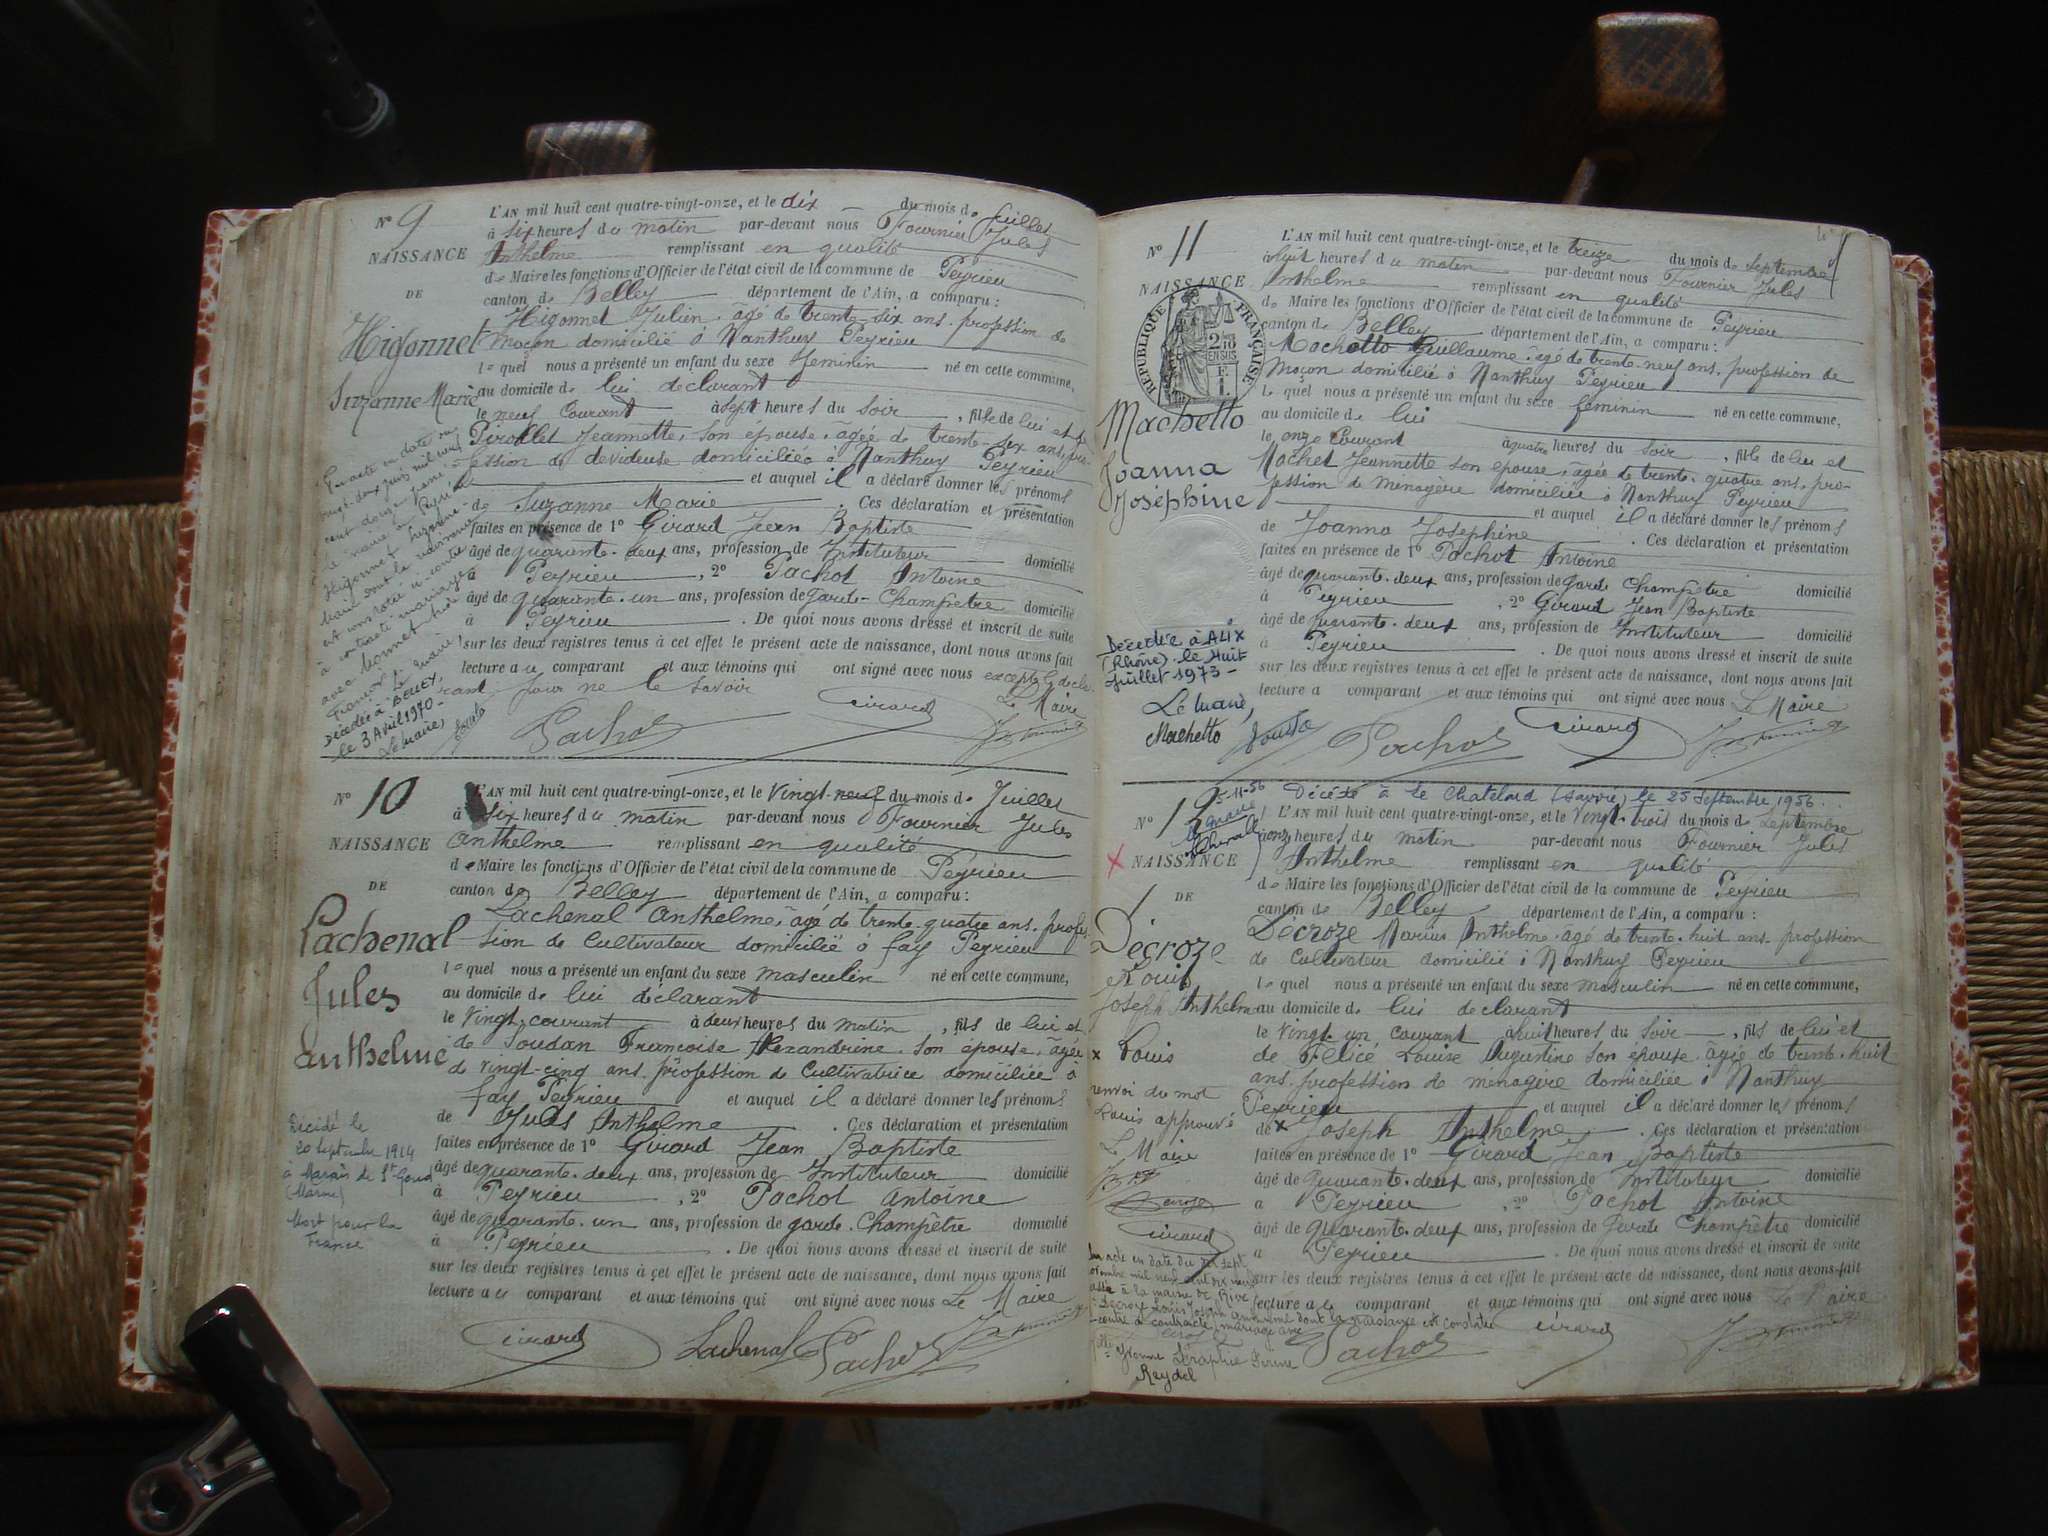 N° 9
NAISSANCE
DE
Higonnet
Suzanne Marie
L'AN mil huit cent quatre-vingt-onze, et le dix du mois de Juillet
à six heures du matin par-devant nous Fournier Jules
Anthelme remplissant en qualité
de Maire les fonctions d'Officier de l'état civil de la commune de Peyrieu
canton de Belley département de l'Ain, a comparu :
Higonnet Julien, âgé de trente-six ans, profession de
maçon domicilié à Nanthuy Peyrieu
lequel nous a présenté un enfant du sexe feminin né en cette commune,
au domicile de lui declarant
le neuf Courant à sept heures du soir, fille de lui et de
Pirollet Jeannette, son épouse, âgée de trente-six ans, pro-
fession de devideuse domiciliée à Nanthuy Peyrieu
et auquel il a déclaré donner les prénoms
de Suzanne Marie. Ces déclaration et présentation
faites en présence de 1° Girard Jean Baptiste
âgé de quarante-deux ans, profession de Instituteur domicilié
à Peyrieu, 2° Pachot Antoine
âgé de quarante-un ans, profession de Garde-Champêtre domicilié
à Peyrieu. De quoi nous avons dressé et inscrit de suite
sur les deux registres tenus à cet effet le présent acte de naissance, dont nous avons fait
lecture au comparant et aux témoins qui ont signé avec nous excepté le decla-
rant pour ne le savoir Le Maire
Girard
Pachot
Décédée à BELLEY,
le 3 Avril 1970-
Le Maire,
N° 10
NAISSANCE
DE
Lachenal
Jules
Anthelme
L'AN mil huit cent quatre-vingt-onze, et le Vingt-neuf du mois de Juillet
à six heures du matin par-devant nous Fournier Jules
Anthelme remplissant en qualité
de Maire les fonctions d'Officier de l'état civil de la commune de Peyrieu
canton de Belley département de l'Ain, a comparu :
Lachenal Anthelme, âgé de trente-quatre ans, profes-
sion de Cultivateur domicilié à fay Peyrieu
lequel nous a présenté un enfant du sexe masculin né en cette commune,
au domicile de lui déclarant
le Vingt courant à deux heures du matin, fils de lui et
de Soudan Françoise Alexandrine, son épouse, âgée
de vingt-cinq ans, profession de Cultivatrice domiciliée à
fay Peyrieu et auquel il a déclaré donner les prénoms
de Jules Anthelme. Ces déclaration et présentation
faites en présence de 1° Girard Jean Baptiste
âgé de quarante-deux ans, profession de Instituteur domicilié
à Peyrieu, 2° Pachot Antoine
âgé de quarante-un ans, profession de garde-Champêtre domicilié
à Peyrieu. De quoi nous avons dressé et inscrit de suite
sur les deux registres tenus à cet effet le présent acte de naissance, dont nous avons fait
lecture au comparant et aux témoins qui ont signé avec nous Le Maire
Girard Lachenal Pachot
Décédé le
20 septembre 1914
à Marais de St Gond
(Marne)
Mort pour la
France
N° 11
NAISSANCE
RÉPUBLIQUE FRANÇAISE
Machetto
Joanna
Joséphine
L'AN mil huit cent quatre-vingt-onze, et le treize du mois de Septembre
à huit heures du matin par-devant nous Fournier Jules
Anthelme remplissant en qualité
de Maire les fonctions d'Officier de l'état civil de la commune de Peyrieu
canton de Belley département de l'Ain, a comparu :
Machetto Guillaume, âgé de trente-neuf ans, profession de
maçon domicilié à Nanthuy Peyrieu
lequel nous a présenté un enfant du sexe feminin né en cette commune,
au domicile de lui
le onze Courant à quatre heures du soir, fille de lui et
Machet Jeannette son epouse, âgée de trente-quatre ans, pro-
fession de Menagère domiciliée à Nanthuy Peyrieu
et auquel il a déclaré donner les prénoms
de Joanna Josephine. Ces déclaration et présentation
faites en présence de 1° Pachot Antoine
âgé de quarante-deux ans, profession de Garde Champêtre domicilié
à Peyrieu, 2° Girard Jean Baptiste
âgé de quarante-deux ans, profession de Instituteur domicilié
à Peyrieu. De quoi nous avons dressé et inscrit de suite
sur les deux registres tenus à cet effet le présent acte de naissance, dont nous avons fait
lecture a comparant et aux témoins qui ont signé avec nous Le Maire
Machetto Pachot Girard
Décédée à ALIX
(Rhône) le Huit
Juillet 1973-
Le Maire,
Décédé à le Chatelard (Savoie) le 25 Septembre 1956.
5-11-56
N° 12
NAISSANCE
DE
Décroze
Louis
Joseph Anthelme
L'AN mil huit cent quatre-vingt-onze, et le Vingt-trois du mois de Septembre
à onze heures du matin par-devant nous Fournier Jules
Anthelme remplissant en qualité
de Maire les fonctions d'Officier de l'état civil de la commune de Peyrieu
canton de Belley département de l'Ain, a comparu :
Décroze Marius Anthelme, âgé de trente-huit ans, profession
de Cultivateur domicilié à Nanthuy Peyrieu
lequel nous a présenté un enfant du sexe masculin né en cette commune,
au domicile de lui declarant
le Vingt-un courant à huit heures du soir, fils de lui et
de Félicé Louise Augustine son épouse, âgée de trente-huit
ans, profession de ménagère domiciliée à Nanthuy
Peyrieu et auquel il a déclaré donner les prénoms
de x Joseph Anthelme. Ces déclaration et présentation
faites en présence de 1° Girard Jean Baptiste
âgé de quarante-deux ans, profession de Instituteur domicilié
à Peyrieu, 2° Pachot Antoine
âgé de quarante-deux ans, profession de Garde Champêtre domicilié
à Peyrieu. De quoi nous avons dressé et inscrit de suite
sur les deux registres tenus à cet effet le présent acte de naissance, dont nous avons fait
lecture au comparant et aux témoins qui ont signé avec nous Le Maire
Pachot Girard
x Louis
renvoi du mot
Louis approuvé
Le Maire
Décroze
Girard
Reydel